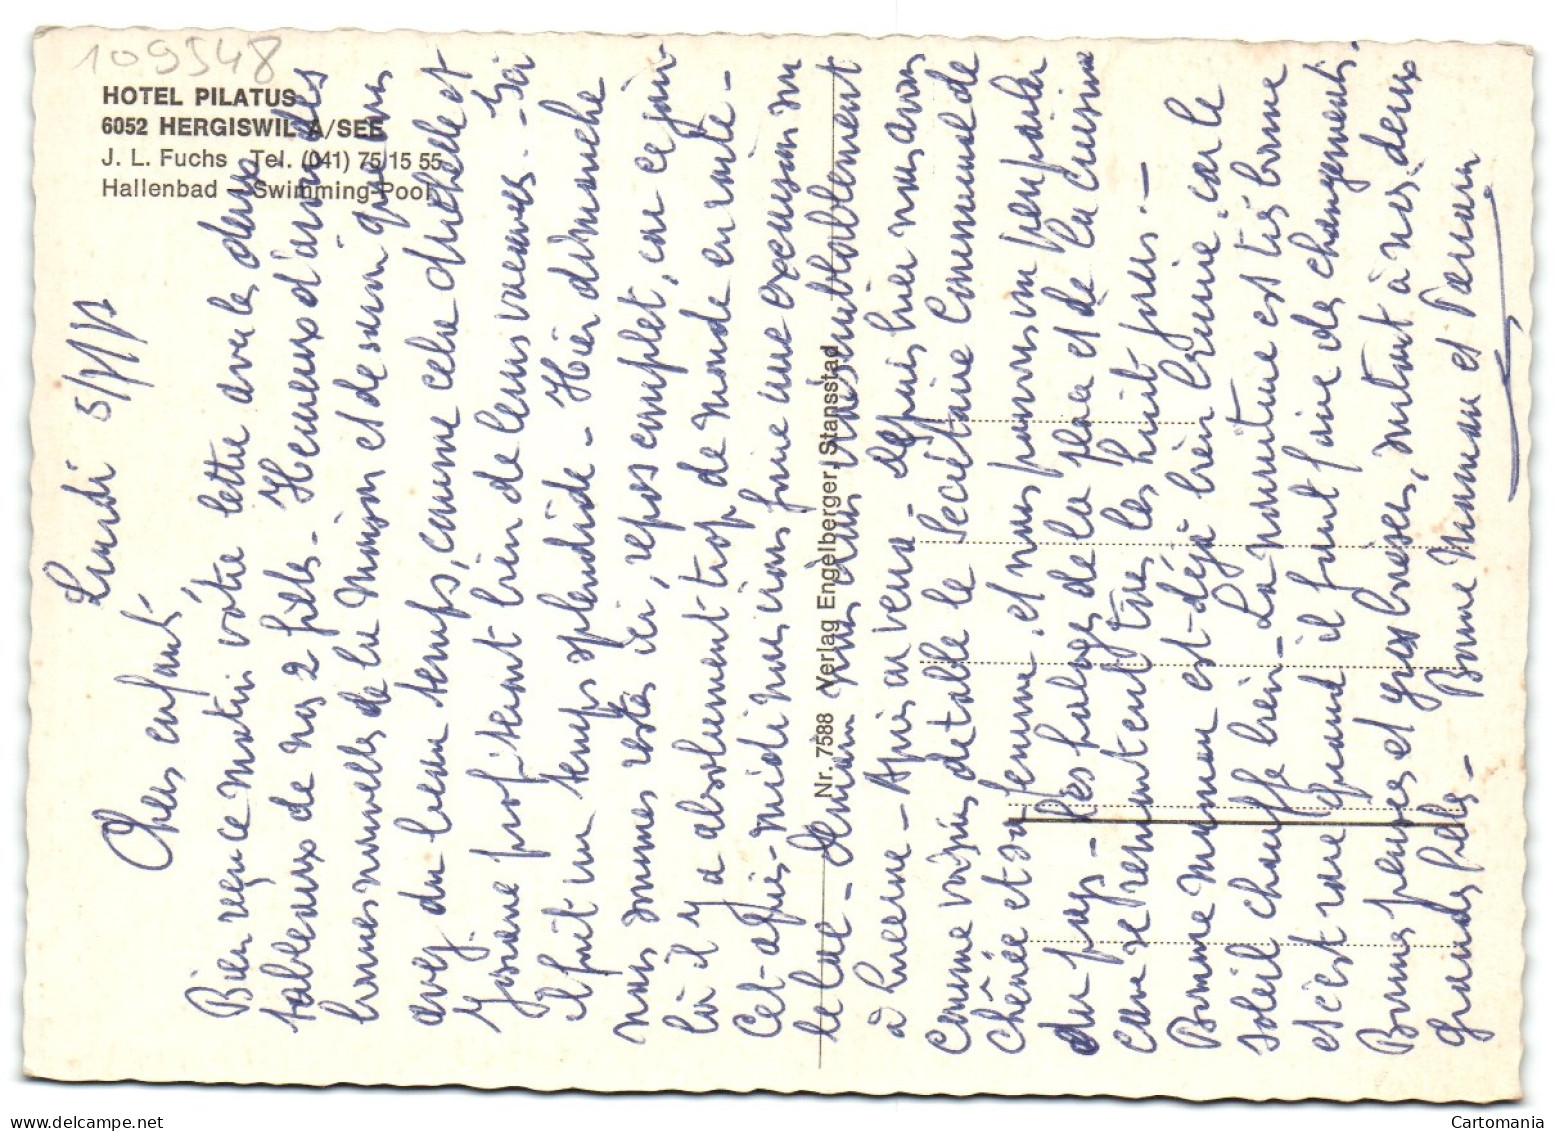 109548
HOTEL PILATUS
6052 HERGISWIL A/SEE
J. L. Fuchs Tel. (041) 75 15 55
Hallenbad – Swimming-Pool
Nr. 7588 Verlag Engelberger, Stansstad
Lundi 5/7/71
Chers enfants,
Bien reçu ce matin votre lettre avec les deux
tableaux de nos 2 filles - Heureux d'avoir de
bonnes nouvelles de la maison et de savoir que vous
avez du beau temps, comme cela Michelle et
Josiane profiteront bien de leurs vacances - Ici
il fait un temps splendide - Hier dimanche
nous sommes restés ici, repos complet, car ce jour
là il y a absolument trop de monde en route -
Cet après-midi nous irons faire une excursion sur
le lac - Demain nous irons vraisemblablement
à Lucerne - Après on verra - depuis hier nous avons
comme voisins de table le Secrétaire Communal de
Chênée et sa femme, et nous pouvons un peu parler
du pays - Les éloges de la place et de la cuisine
se ressentent tous les huit jours -
Bonne Maman est déjà bien brunie car le
soleil chauffe bien - La nourriture est très bonne
et c'est rare quand il faut faire des changements.
Bonnes pensées et gros baisers, surtout à nos deux
grandes filles - Bonne Maman et Parrain
Cartomania